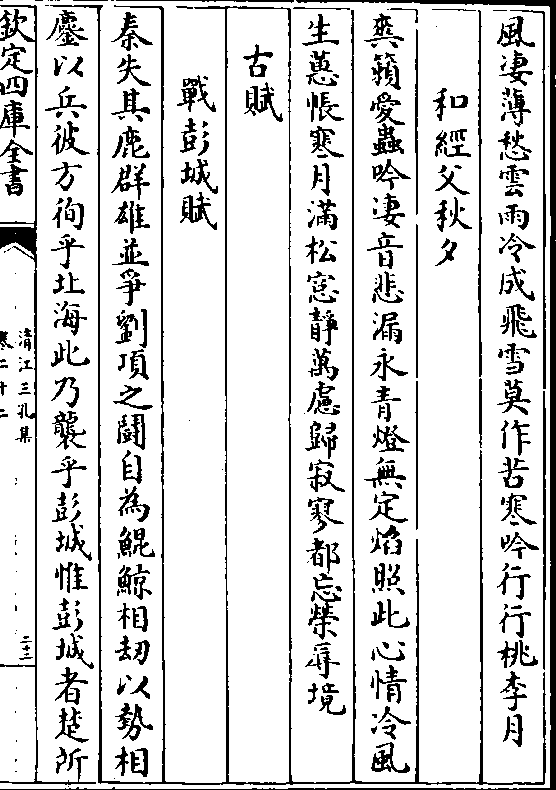 風凄薄愁雲雨冷成飛雪莫作苦寒吟行行桃李月
和經父秋夕
爽籟愛蟲吟凄音悲漏永青燈無定焰照此心情冷風
生蕙帳寒月滿松窓靜萬慮歸寂寥都忘榮辱境
古賦
戰彭城賦
秦失其鹿群雄並爭劉項之鬬自為鯤鯨相刼以勢相
鏖以兵彼方徇乎北海此乃襲乎彭城惟彭城者楚所
欽定四庫全書
清江三孔集
卷二十二
二十二